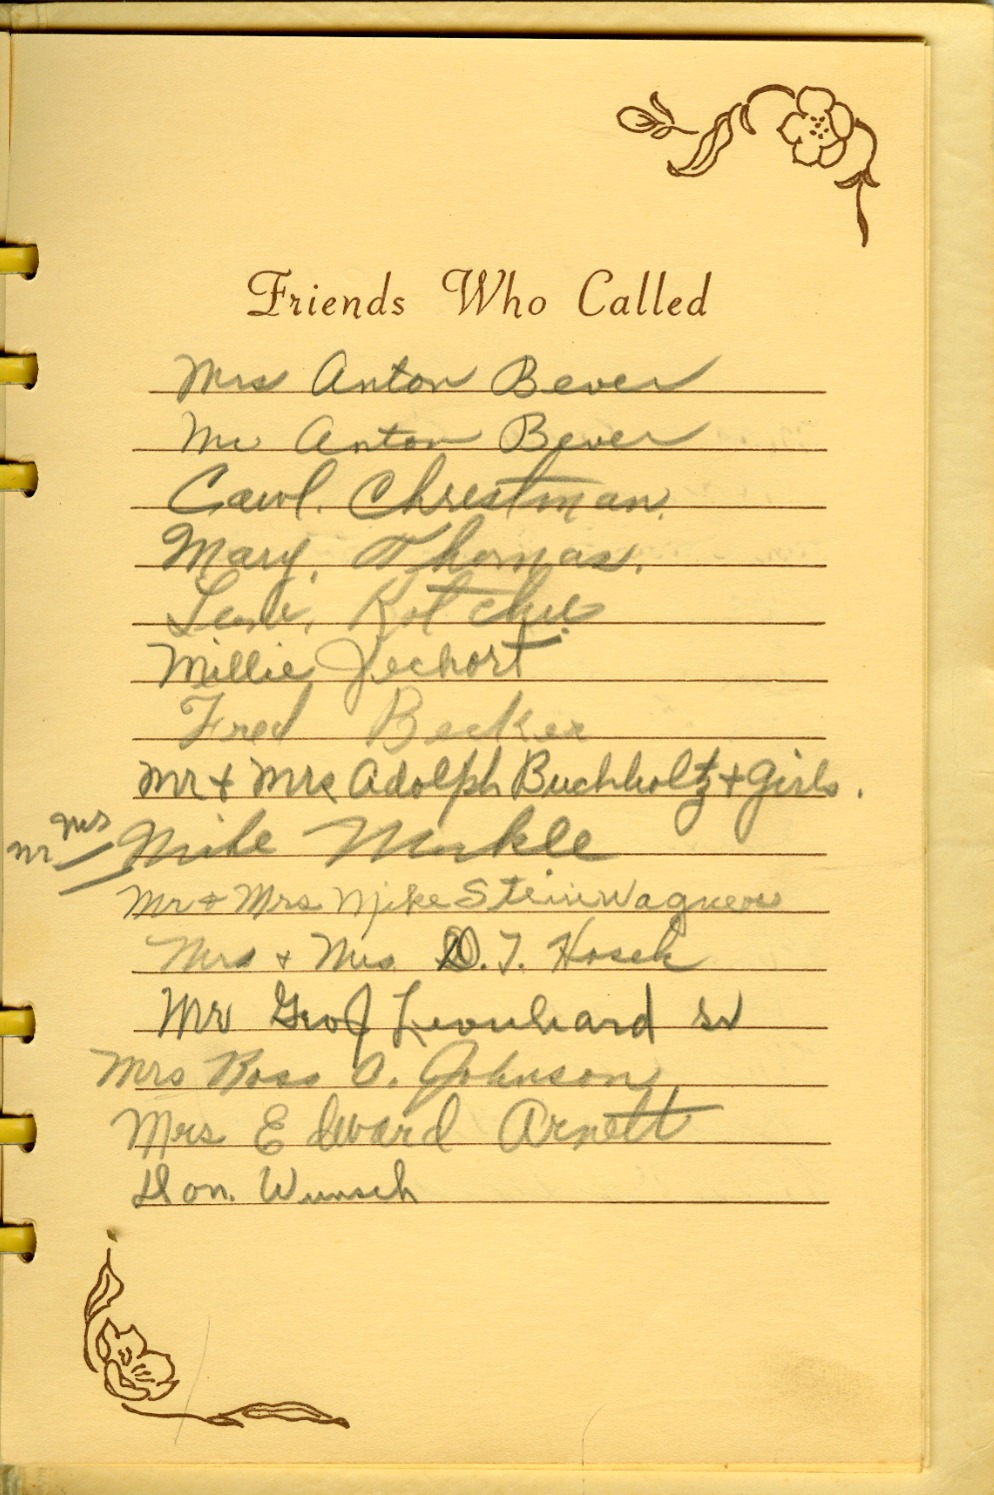 Friends Who Called
Mrs Anton Bever
Mr Anton Bever
Carol. Chrestman.
Mary. Thomas.
Millie Jechort
Fred Becker
Mr & Mrs Adolph Buchholtz & Girls.
Mr Mrs Mike Merkle
Mr & Mrs Mike Steinwagner
Mrs & Mrs D. T. Hosek
Mr Geo J Leonhard Sr
Mrs Ross O. Johnson
Mrs Edward Arnett
Don. Wunsch